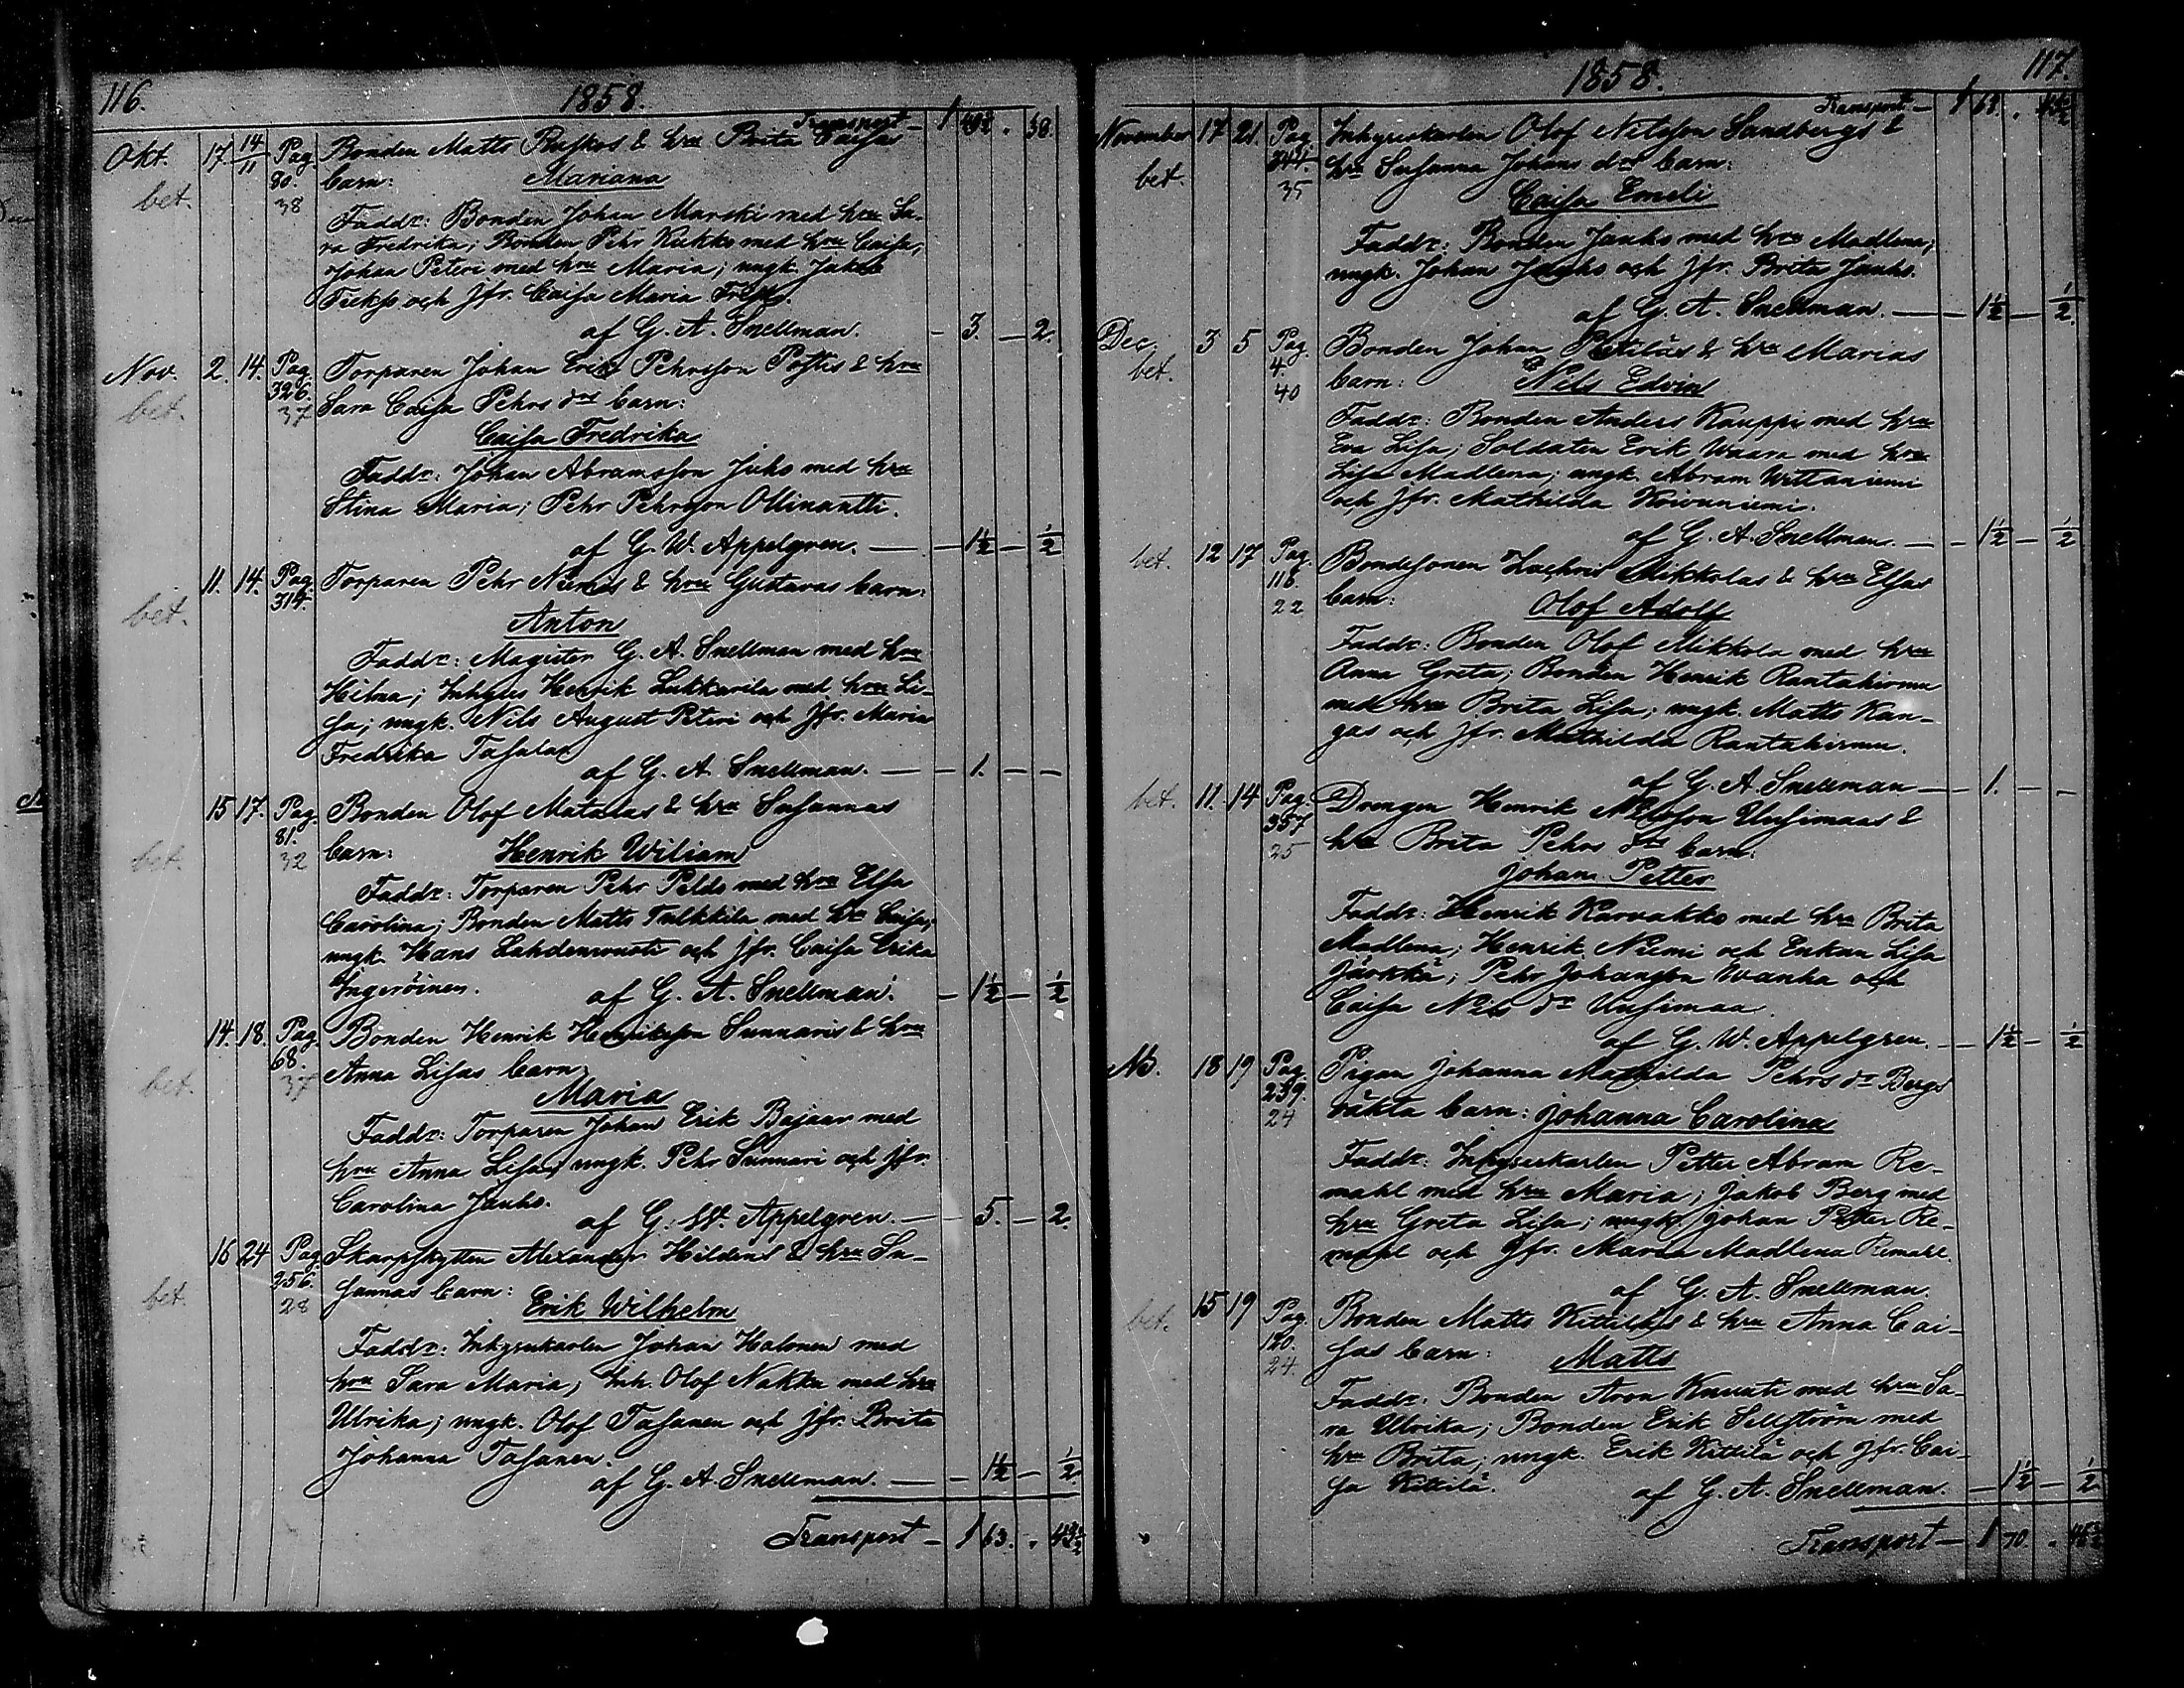 116.
1858.
Transport —
1 49½ . 38
Okt. 17. 14/11 Pag. Bonden Matts Ruskos & hru Brita Caisas
bet. 80. barn: Mariana
38
Faddr: Bonden Johan Marski med hru Sa-
ra Fredrika; Bonden Pehr Kukko med hru Caisa;
Johan Peteri med hru Maria; ungk. Jakob
och Jfr. Caisa Maria
af G. A. Snellman. — 3. — 2.
Nov. 2. 14. Pag. Torparen Johan Erik Pehrsson Postis & hru
bet. 326. Sara Caisa Pehrs drs barn:
37
Caisa Fredrika
Faddr: Johan Abramsson Juho med hru
Stina Maria; Pehr Pehrsson Ollinantti.
af G. W. Appelgren. — — 1½ — ½
11. 14. Pag. Torparen Pehr Niemis & hru Gustavas barn:
bet. 314.
Anton
Faddr: Magister G. A. Snellman med hru
Hilma; Inhyses Henrik Lukkarila med hru Li-
sa; ungk. Nils August Peteri och Jfr. Maria
Fredrika
af G. A. Snellman. — — 1. — —
15 17. Pag. Bonden Olof Matalas & hru Susannas
bet. 81. barn: Henrik Wiliam
32
Faddr: Torparen Pehr Peldo med hru Elsa
Carolina; Bonden Matts Tulkkila med hru Caisa;
ungk. Hans Lahdenrouti och Jfr. Caisa Erika
Ingeröinen. af G. A. Snellman. — 1½ — ½
14. 18. Pag. Bonden Henrik Henriksson Sunnaris & hru
bet. 68. Anna Lisas barn:
37
Maria
Faddr: Torparen Johan Erik Bajaar med
hru Anna Lisa; ungk. Pehr Sunnari och Jfr.
Carolina Jauho.
af G. W. Appelgren. — — 5. — 2.
16 24 Pag. Skarpskytten Alexander Hildens & hru Su-
bet. 256. sannas barn:
28
Erik Wilhelm
Faddr: Inhysekarlen Johan Halonen med
hru Sara Maria; Inh. Olof Nakka med hru
Ulrika; ungk. Olof Tasanen och Jfr. Brita
Johanna Tasanen.
af G. A. Snellman. — — 1½ — ½
Transport — 1 63. .
1858.
117.
Transport — 1 63. .
November 17 21. Pag. Inhysekarlen Olof Nilsson Sandbergs &
bet. 344. hru Susanna Johans drs barn:
35
Caisa Emeli
Faddr: Bonden Jauho med hru Madlena;
ungk. Johan Jauho och Jfr. Brita Jauho.
af G. A. Snellman. — — 1½ — ½
Dec. 3 5 Pag. Bonden Johan & hru Marias
bet. 4. barn: Nils Edvin
40
Faddr: Bonden Anders Kauppi med hru
Eva Lisa; Soldaten Erik Waara med hru
Lisa Madlena; ungk. Abram Wittaniemi
och Jfr. Mathilda Koivuniemi.
af G. A. Snellman. — — 1½ — ½
bet. 12 17 Pag. Bondesonen Zachris Mikkolas & hru Elsas
116. barn: Olof Adolf
22
Faddr: Bonden Olof Mikkola med hru
Anna Greta; Bonden Henrik Rantahirmu
med hru Brita Lisa; ungk. Matts Kan-
gas och Jfr. Mathilda Rantahirmu.
af G. A. Snellman — — 1. — —
bet. 11. 14 Pag. Drengen Henrik Nilsson Uusimaas &
357 hru Brita Pehrs drs barn:
25
Johan Petter
Faddr: Henrik Karvakko med hru Brita
Madlena; Henrik Niemi och Enkan Lisa
Järkkä; Pehr Johansson Wanha och
Caisa Nils dr Uusimaa.
af G. W. Appelgren. — — 1½ — ½
Nb. 18 19 Pag. Pigan Johanna Mathilda Pehrs dr Bergs
239. oäkta barn: Johanna Carolina
24
Faddr: Inhysekarlen Petter Abram Re-
mahl med hru Maria; Jakob Berg med
hru Greta Lisa; ungk. Johan Petter Re-
mahl och Jfr. Maria Madlena Remahl.
af G. A. Snellman.
bet. 15 19 Pag. Bonden Matts Kittiläs & hru Anna Cai-
120. sas barn: Matts
24.
Faddr: Bonden Aron Knuuti med hru Sa-
ra Ulrika; Bonden Erik Sellström med
hru Brita; ungk. Erik Kittilä och Jfr. Cai-
sa Kittilä. af G. A. Snellman. — 1½ — ½
Transport — 1 70 .